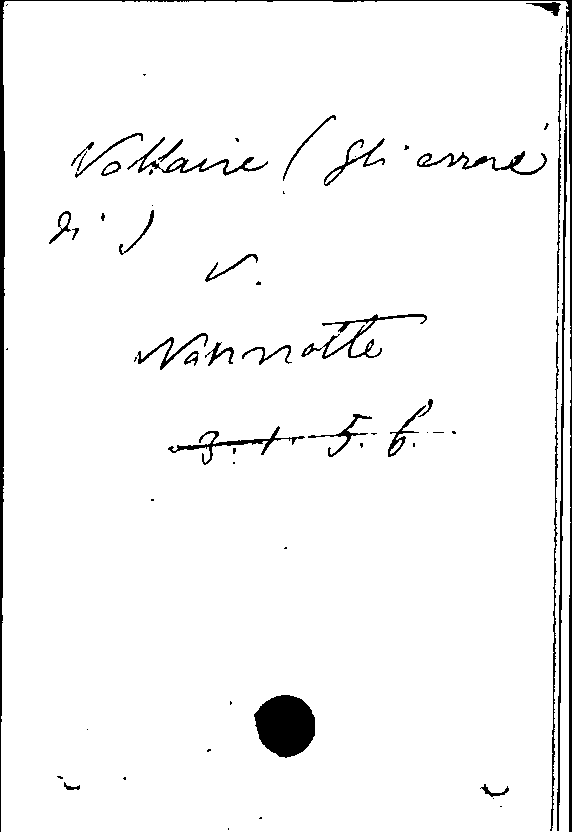 Voltaire (gli errori
di)
V.
Nannotte
3. 1. 5. 6.